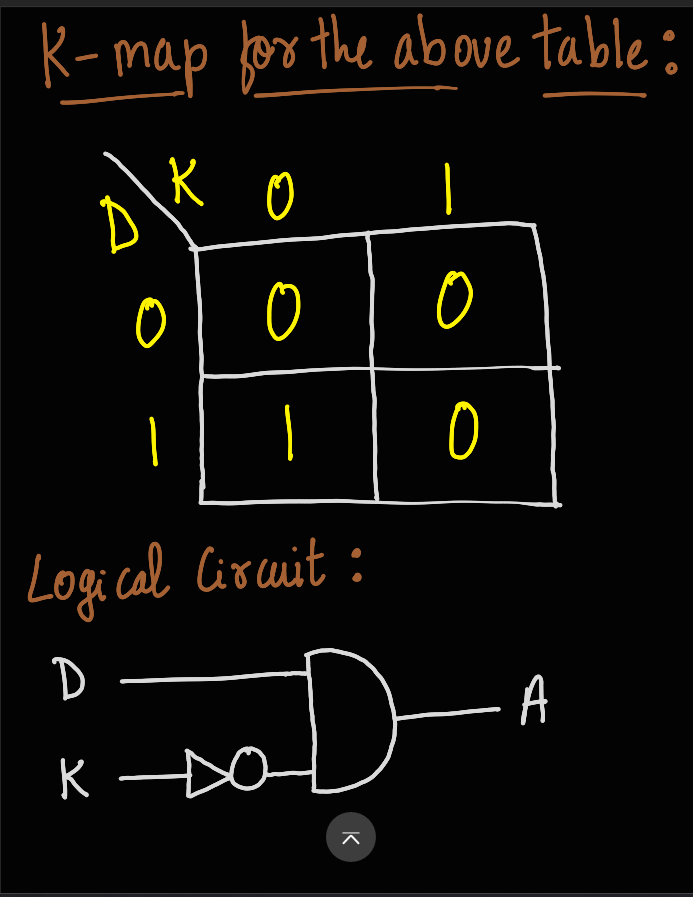 K-map for the above table:
K 0 1
D
0 0 0
1 1 0
Logical Circuit:
D
A
K